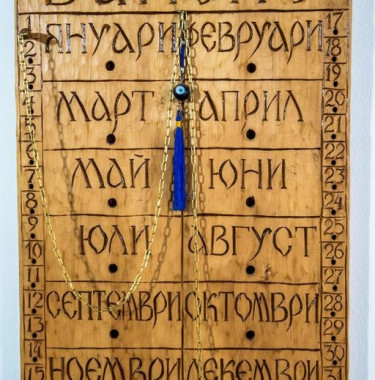 ЯНУАРИ ФЕВРУАРИ
МАРТ АПРИЛ
МАЙ ЮНИ
ЮЛИ АВГУСТ
СЕПТЕМВРИ ОКТОМВРИ
НОЕМВРИ ДЕКЕМВРИ
2
3
4
5
6
7
8
9
10
11
12
13
14
15
17
18
19
20
21
22
23
24
25
26
27
28
29
30
31